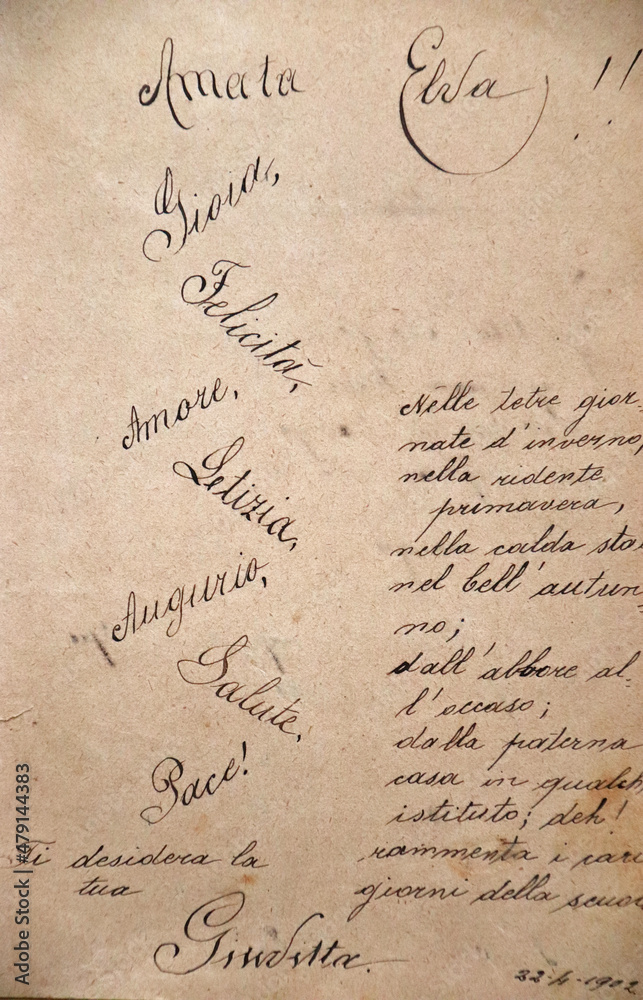 Amata Elda !!
Gioia,
Felicità,
Amore,
Letizia,
Augurio,
Salute,
Pace!
Ti desidera la
tua
Giuditta.
Nelle tetre gior-
nate d'inverno,
nella ridente
primavera,
nella calda sta
nel bell'autun-
no;
dall'albore al-
l'occaso;
dalla paterna
casa in qualch
istituto; deh!
rammenta i cari
giorni della scuo
22-4-1902
Adobe Stock | #479144383